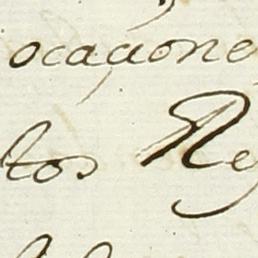 ocaçione
tos Re